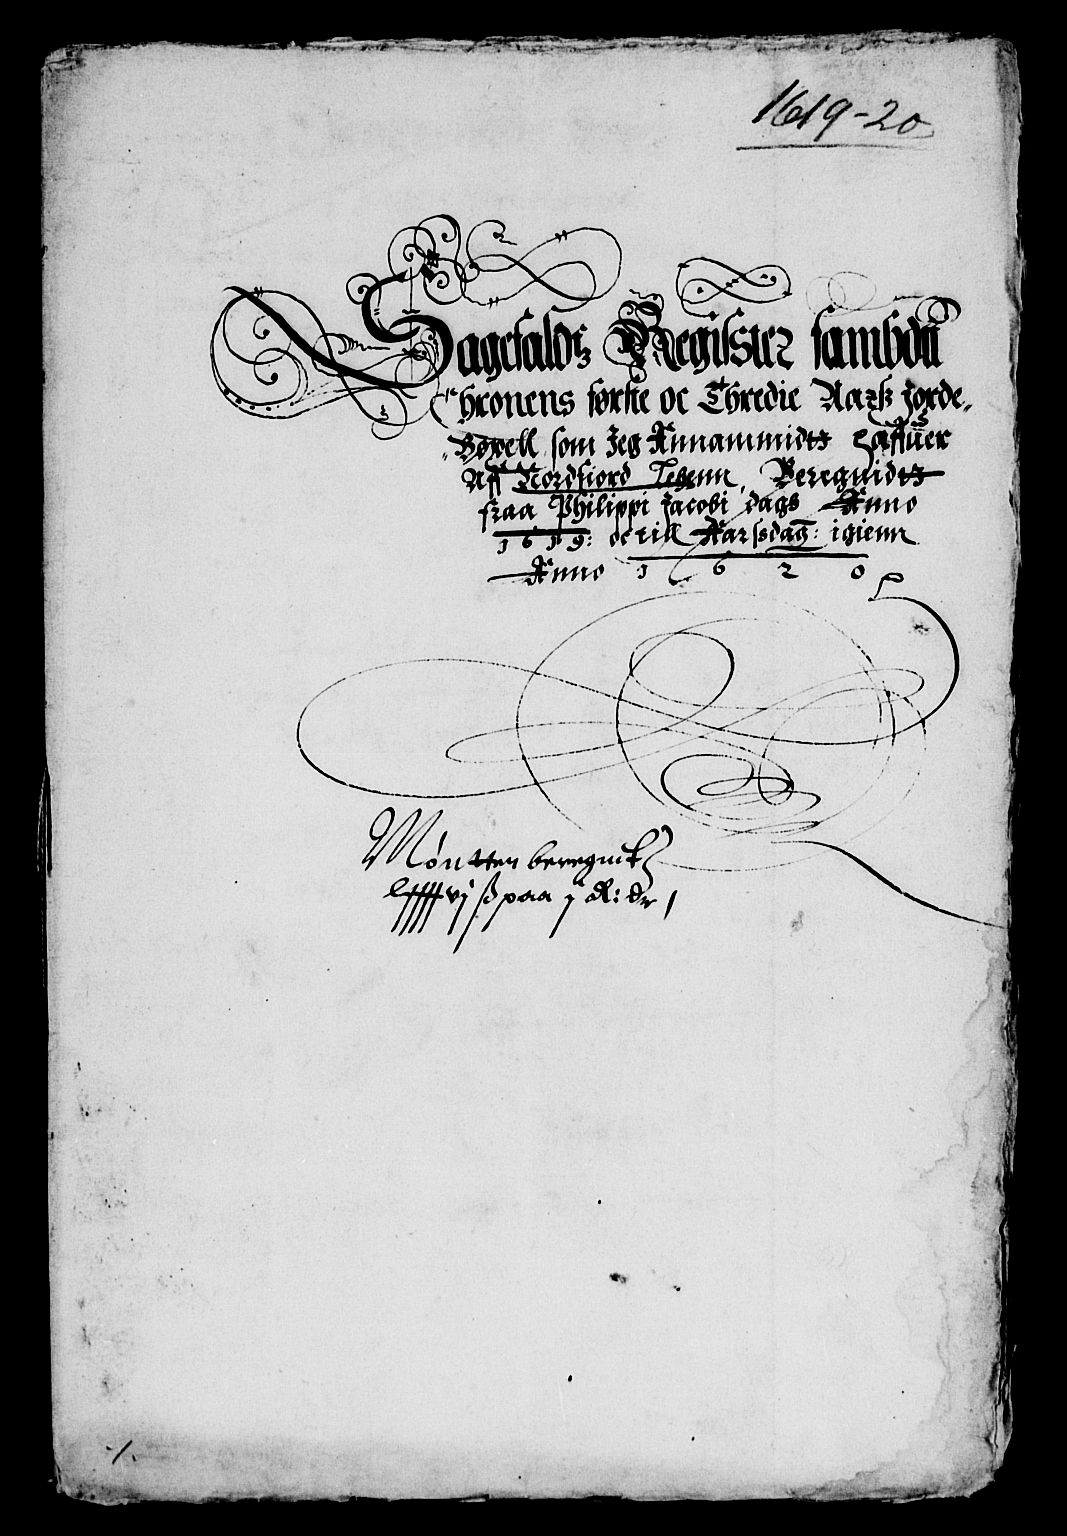 1619-20
Sagefaldz Register sambdtt
Chronens første oc Thredie Aarß Jorde-
Bøxell som Jeg Annammidtz haffuer
Aff Nordfiord Lehenn, Beregnidtz
fraa Philippi Jacobi dags Anno
1619: oc till Aarssdag: igienn
Anno 1620
Møntten beregnit
vj ß paa j R: dr
1.